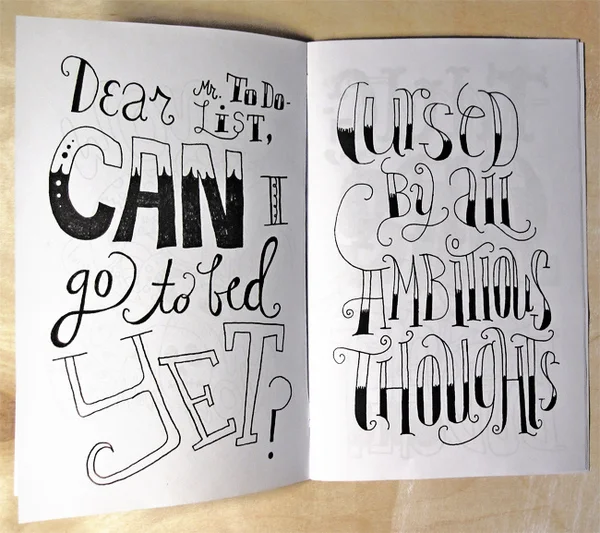 Dear Mr. To Do-
List,
CAN I
go to bed
YET?
CURSED
By all
AMBITIOUS
THOUGHTS